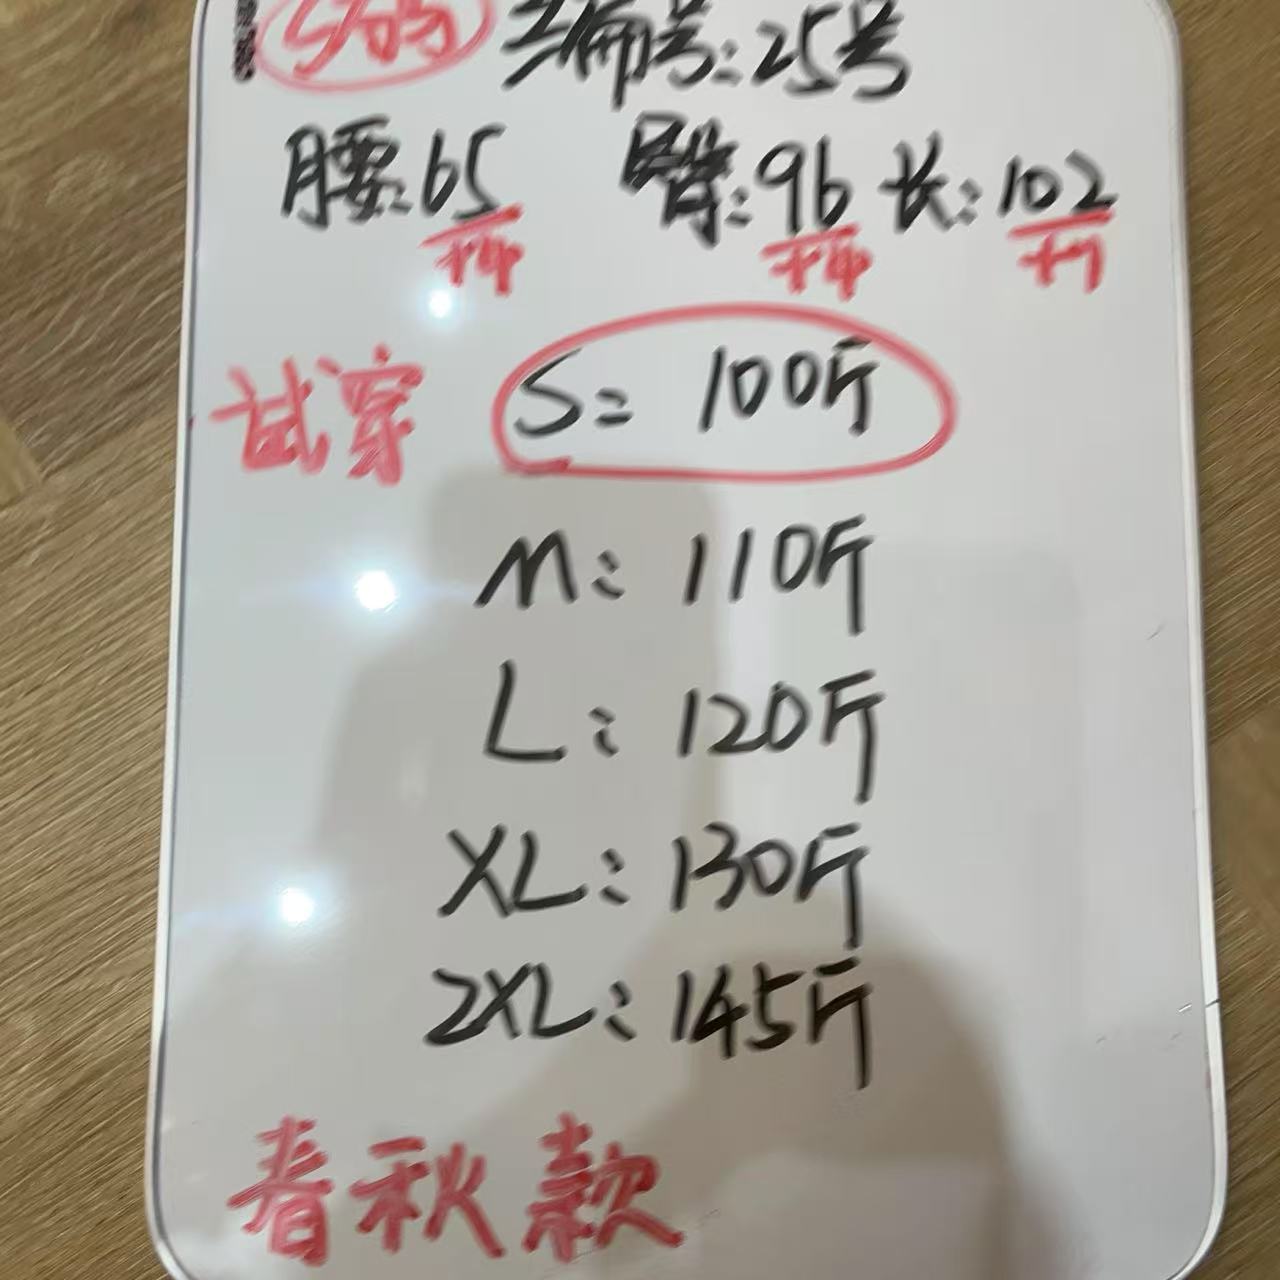 S码 编号:25号
腰:65 臀:96 长:102
+4 +4 +1
试穿 S= 100斤
M: 110斤
L: 120斤
XL: 130斤
2XL: 145斤
春秋款